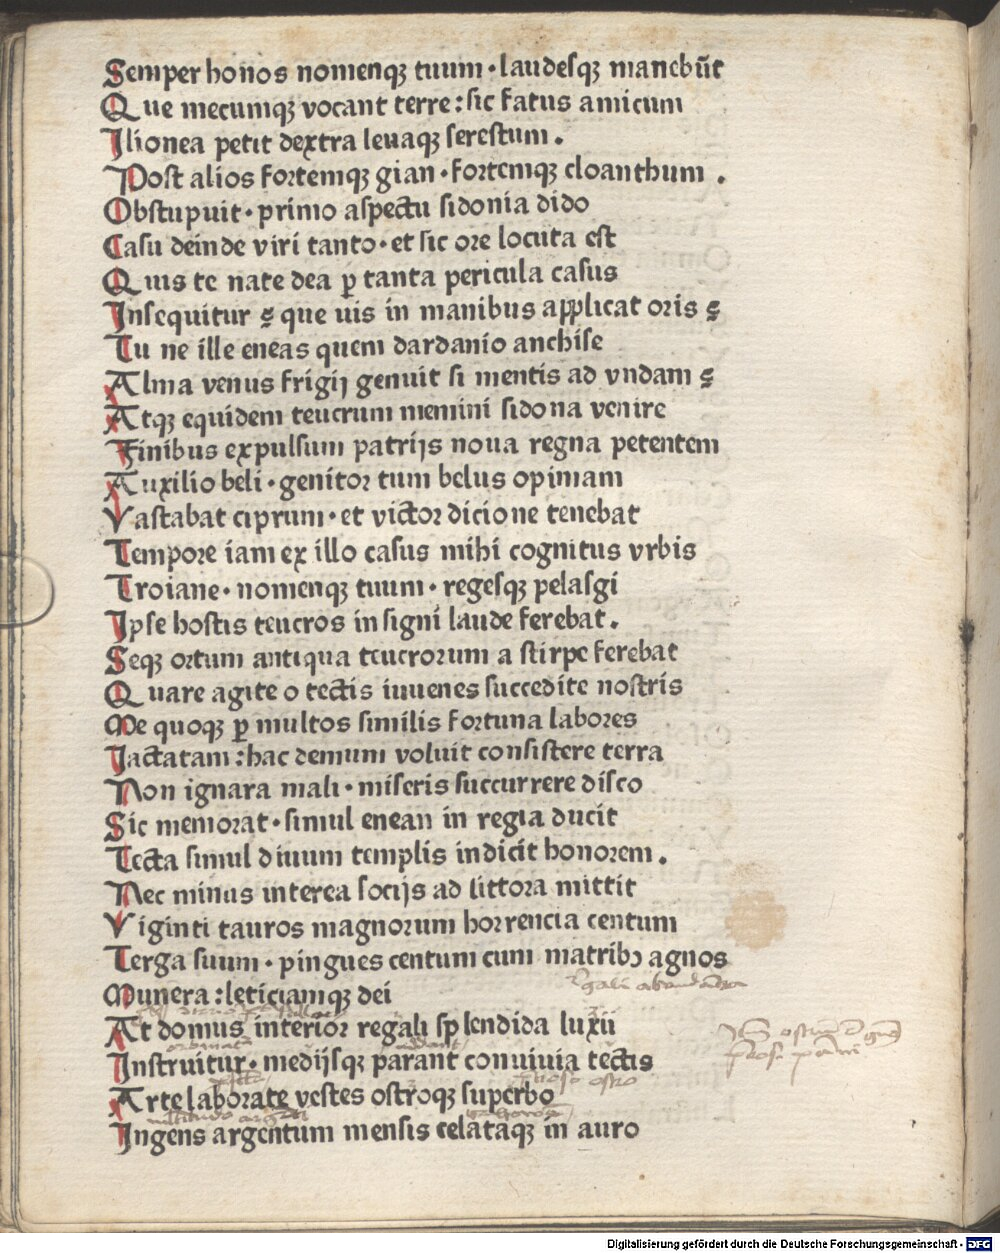 Semper honos nomenqꝫ tuum · laudesqꝫ manebūt
Que mecumqꝫ vocant terre : sic fatus amicum
Ilionea petit dextra leuaqꝫ serestum .
Post alios fortemqꝫ gian · fortemqꝫ cloanthum .
Obstupuit · primo aspectu sidonia dido
Casu deinde viri tanto · et sic ore locuta est
Quis te nate dea ꝑ tanta pericula casus
Insequitur ? que uis in manibus applicat oris ?
Tu ne ille eneas quem dardanio anchise
Alma venus frigij genuit si mentis ad vndam ?
Atqꝫ equidem teucrum memini sidona venire
Finibus expulsum patrijs noua regna petentem
Auxilio beli · genitor tum belus opimam
Vastabat ciprum · et victor dicione tenebat
Tempore iam ex illo casus mihi cognitus vrbis
Troiane · nomenqꝫ tuum · regesqꝫ pelasgi
Ipse hostis teucros insigni laude ferebat .
Seqꝫ ortum antiqua teucrorum a stirpe ferebat
Quare agite o tectis iuuenes succedite nostris
Me quoqꝫ ꝑ multos similis fortuna labores
Iactatam : hac demum voluit consistere terra
Non ignara mali · miseris succurrere disco
Sic memorat · simul enean in regia ducit
Tecta simul diuum templis indicit honorem .
Nec minus interea socijs ad littora mittit
Viginti tauros magnorum horrencia centum
Terga suum · pingues centum cum matribꝫ agnos
Munera : leticiamqꝫ dei
At domus interior regali splendida luxu
Instruitur · medijsqꝫ parant conuiuia tectis
Arte laborate vestes ostroqꝫ superbo
Ingens argentum mensis celataqꝫ in auro
Digitalisierung gefördert durch die Deutsche Forschungsgemeinschaft - DFG